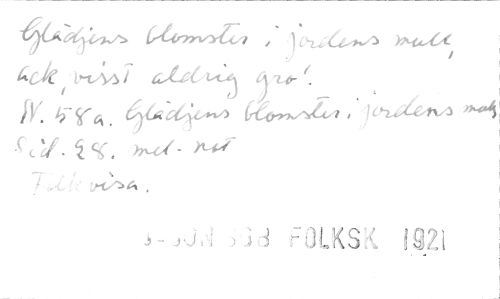 Glädjens blomster i jordens mull,
ack, visst aldrig gro!
N. 58a. Glädjens blomster i jordens mull,
Sid. 28. mel. not
Folkvisa.
FOLKSK 1921